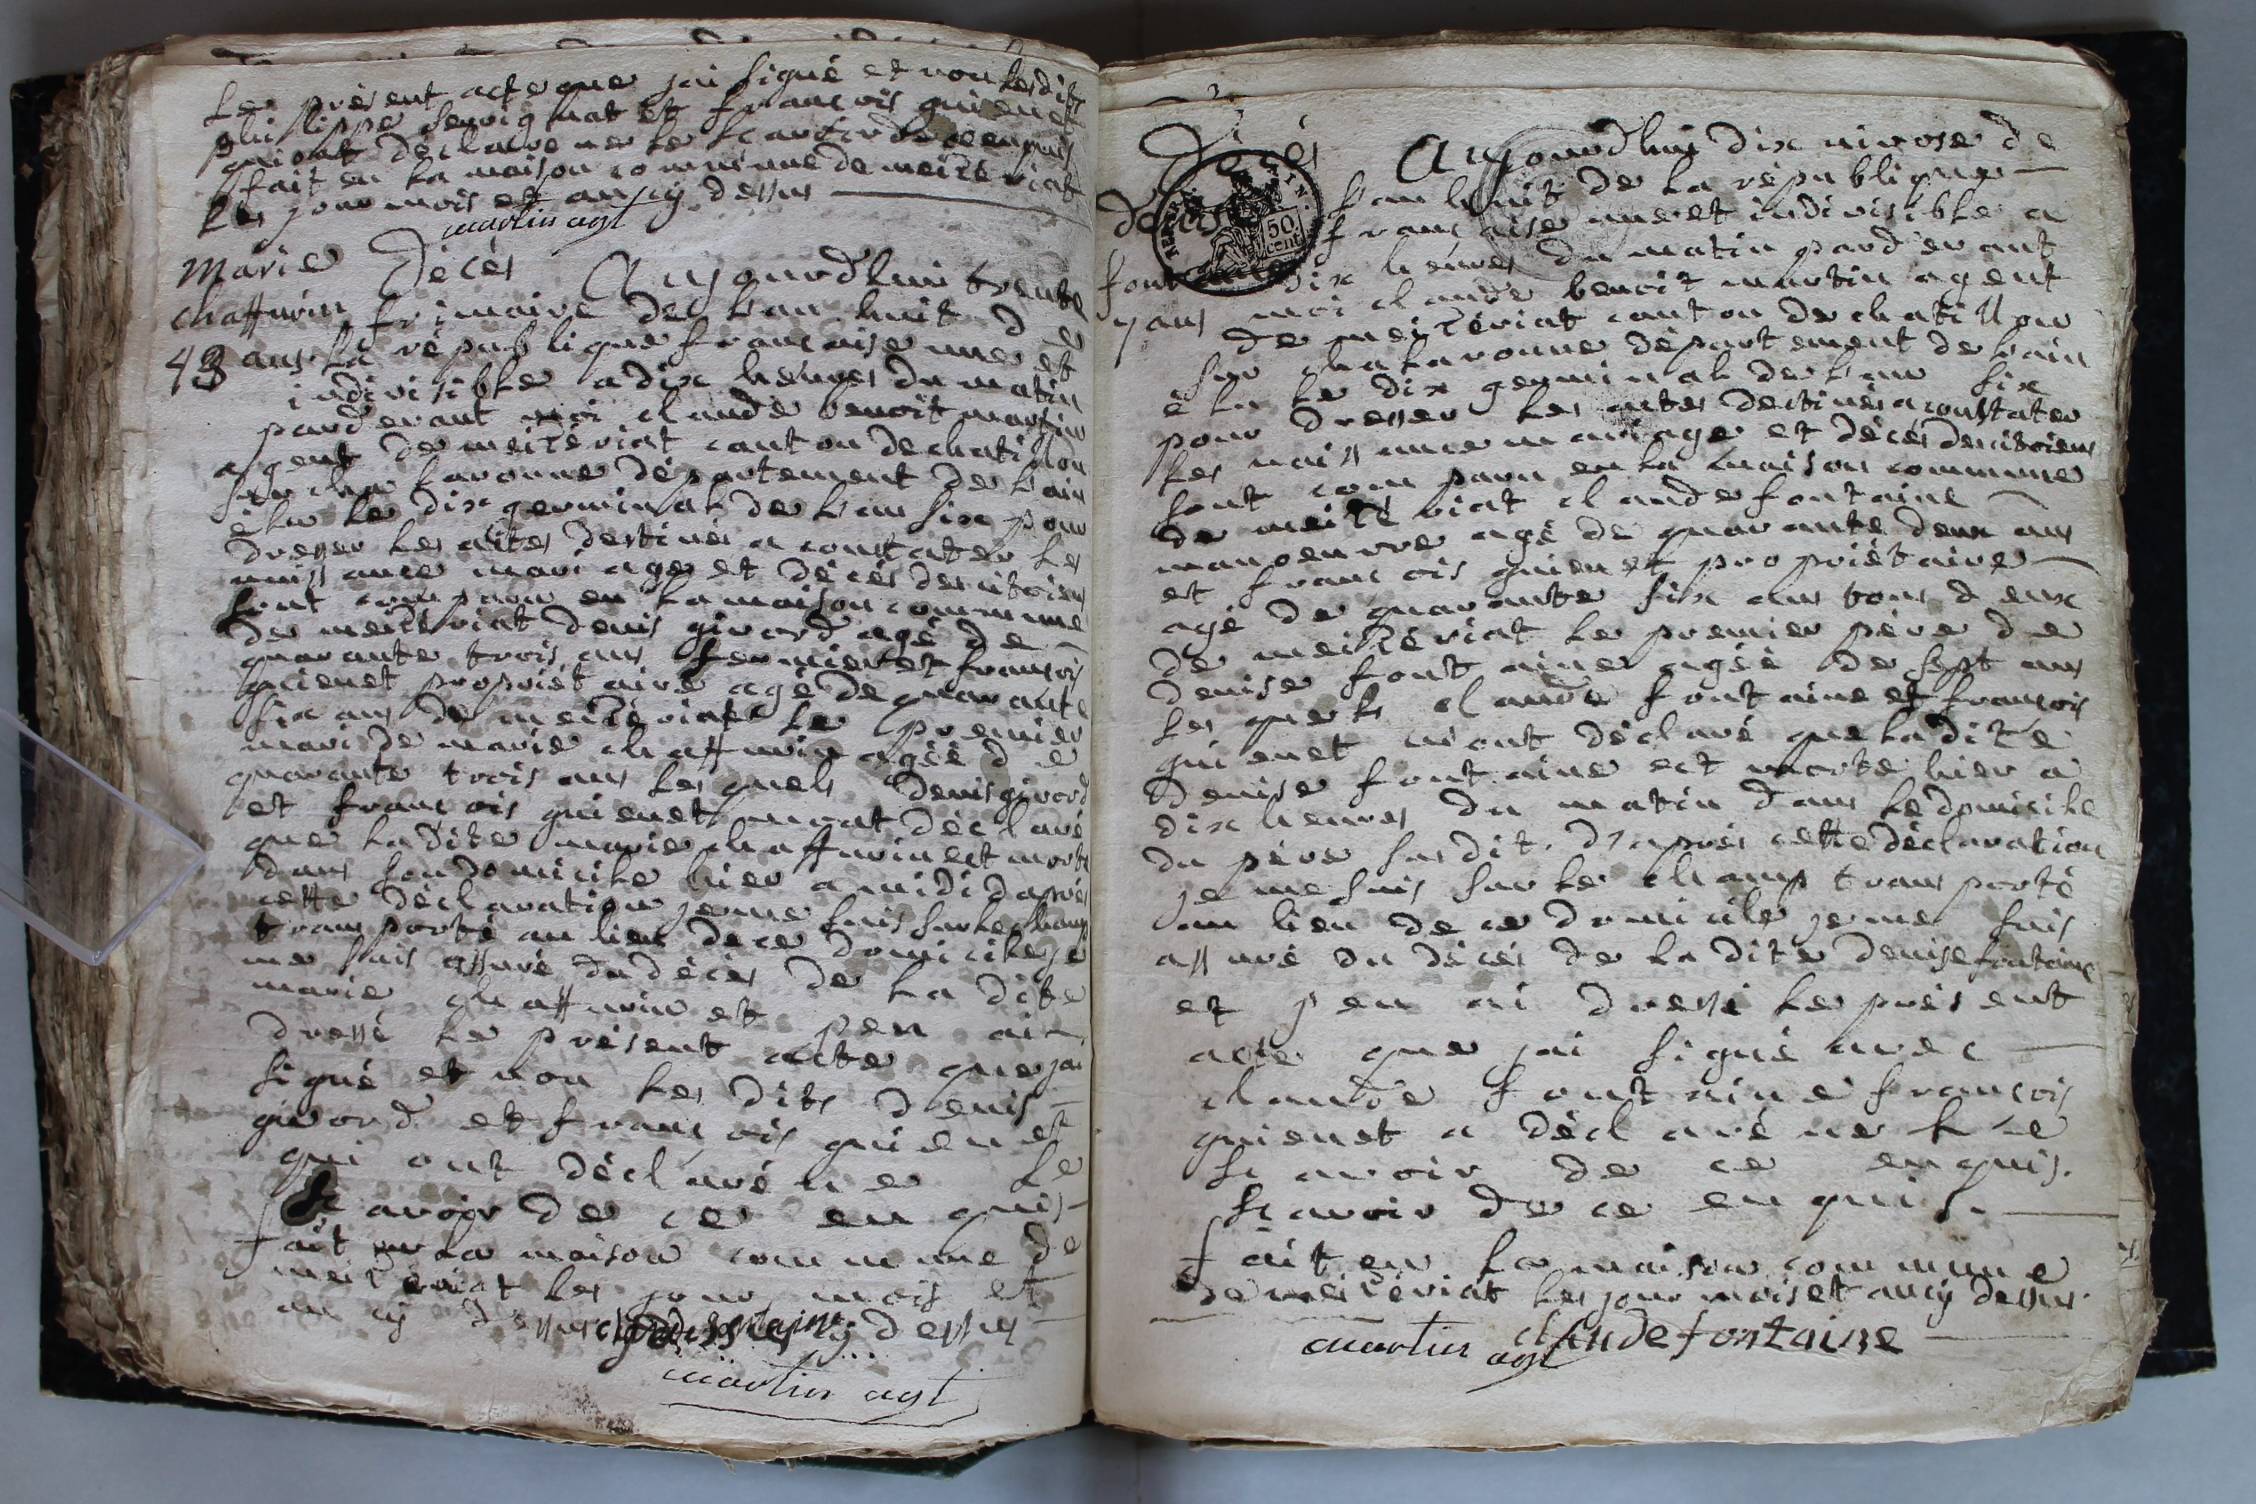 le présent acte que jai signé et non lesdits
philippe et françois guienet
qui ont déclaré ne le scavoir de ce enquis
fait en la maison commune de meizériat
les jour mois et an cy dessus
martin agt
marie Décés Aujourdhui trente
chaffurin frimaire de lan huit de
43 ans la république française une et
indivisible a dix heures du matin
pardevant moi claude benoit martin
agent de meizériat canton de chatillon
sur chalaronne département de lain
élu le dix germinal de lan six pour
dresser les actes destinés a constater les
naissance mariage et décés des citoiens
sont comparu en la maison commune
de meizériat denis girord agé de
quarante trois ans fermier et françois
guienet propriétaire agé de quarante
six ans de meizériat le premier
mari de marie chaffurin agée de
quarante trois ans les quels denis girord
et françois guienet mont déclaré
que ladite marie chaffurin est morte
dans son domicile hier a midi dapres
cette déclaration je me suis sur le champ
transporté au lieu de ce domicile je
me suis assuré du décés de la dite
marie chaffurin et jen ai
dressé le présent acte que jai
signé et non les dits denis
girord et françois guienet
qui ont déclaré ne le
scavoir de ce enquis
fait en la maison commune de
meizériat les jour mois et
an cy dessus cy dessus
martin agt
Décés Aujourdhui dix nivose de
denise lan huit de la république
française une et indivisible a
font dix heures du matin pardevant
7 ans moi claude benoit martin agent
de meizériat canton de chatillon
sur chalaronne département de lain
élu le dix germinal de lan six
pour dresser les actes destinés a constater
les naissance mariage et décés des citoiens
sont comparu en la maison commune
de meizériat claude fontaine
manoeuvre agé de quarante deux ans
et françois guienet propriétaire
agé de quarante six ans tous deux
de meizériat le premier père de
denise fontaine agée de sept ans
les quels claude fontaine et françois
guienet mont déclaré que ladite
denise fontaine est morte hier a
dix heures du matin dans le domicile
du père susdit. dapres cette déclaration
je me suis sur le champ transporté
au lieu de ce domicile je me suis
assuré du décés de la dite denise fontaine
et jen ai dressé le présent
acte que jai signé avec
claude fontaine françois
guienet a déclaré ne le
scavoir de ce enquis.
scavoir de ce enquis.
fait en la maison commune
de meizériat les jour mois et an cy dessus.
martin agt claude fontaine
50
cent.